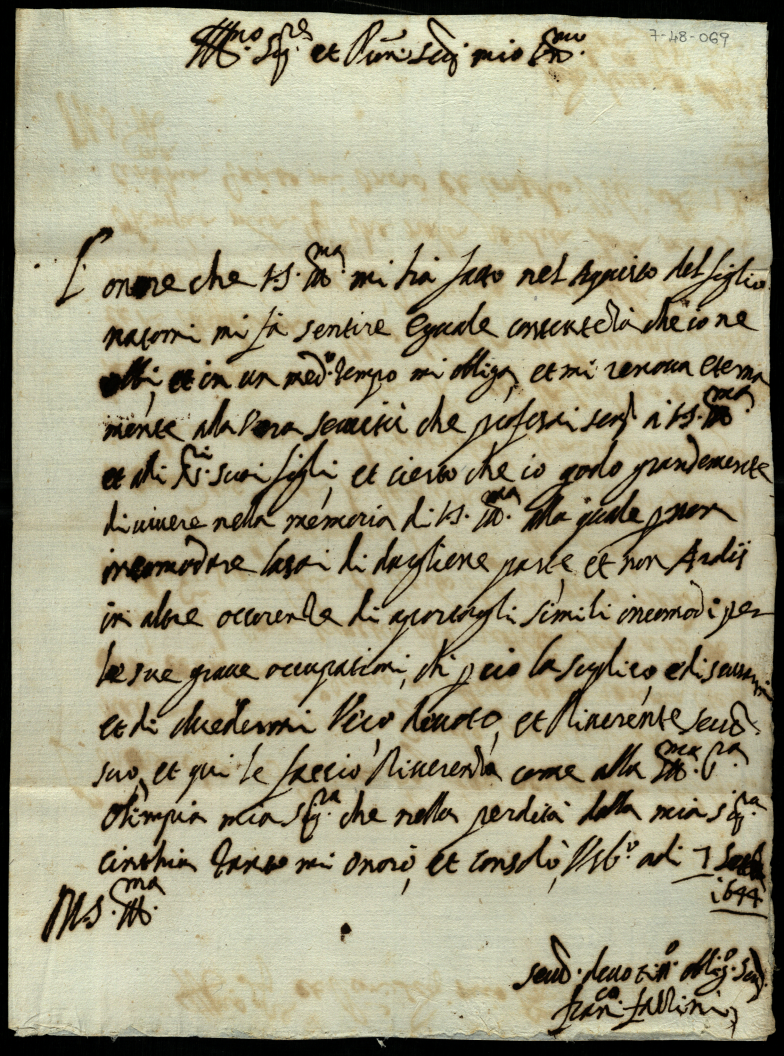 7-48-069
Ill.mo Sig.re et Pron. Sig. mio Col.mo
L'
onore che V.S. Ill.ma mi hà fatto nel Aquisto del figlio
natomi mi fà sentire eguale contenteza che io ne
ebbi, et in un med.o tempo mi obliga, et mi renova eterna
mente alla vera servitù che professai semp. a V.S. Ill.ma
et alli suoi figli, et certo che io godo grandemente
di vivere nella memoria di V.S. Ill.ma alla quale p non
incomodare lassai di dargliene parte, et non Ardij
in altre occorenze di aportargli simili incomodi per
le sue grave occupationi, di p ciò la suplico,
et di credermi Vero devoto, et Riverente serv.
suo, et qui le faccio Riverenza come alla Ill.ma S.ra
Olimpia mia Sig.ra che nella perdita della mia Sig.ra
Cinthia tanto mi onorò, et consolò, adi 7
1644
D V.S. Ill.ma
devotiss.o oblig.o
Fran.co